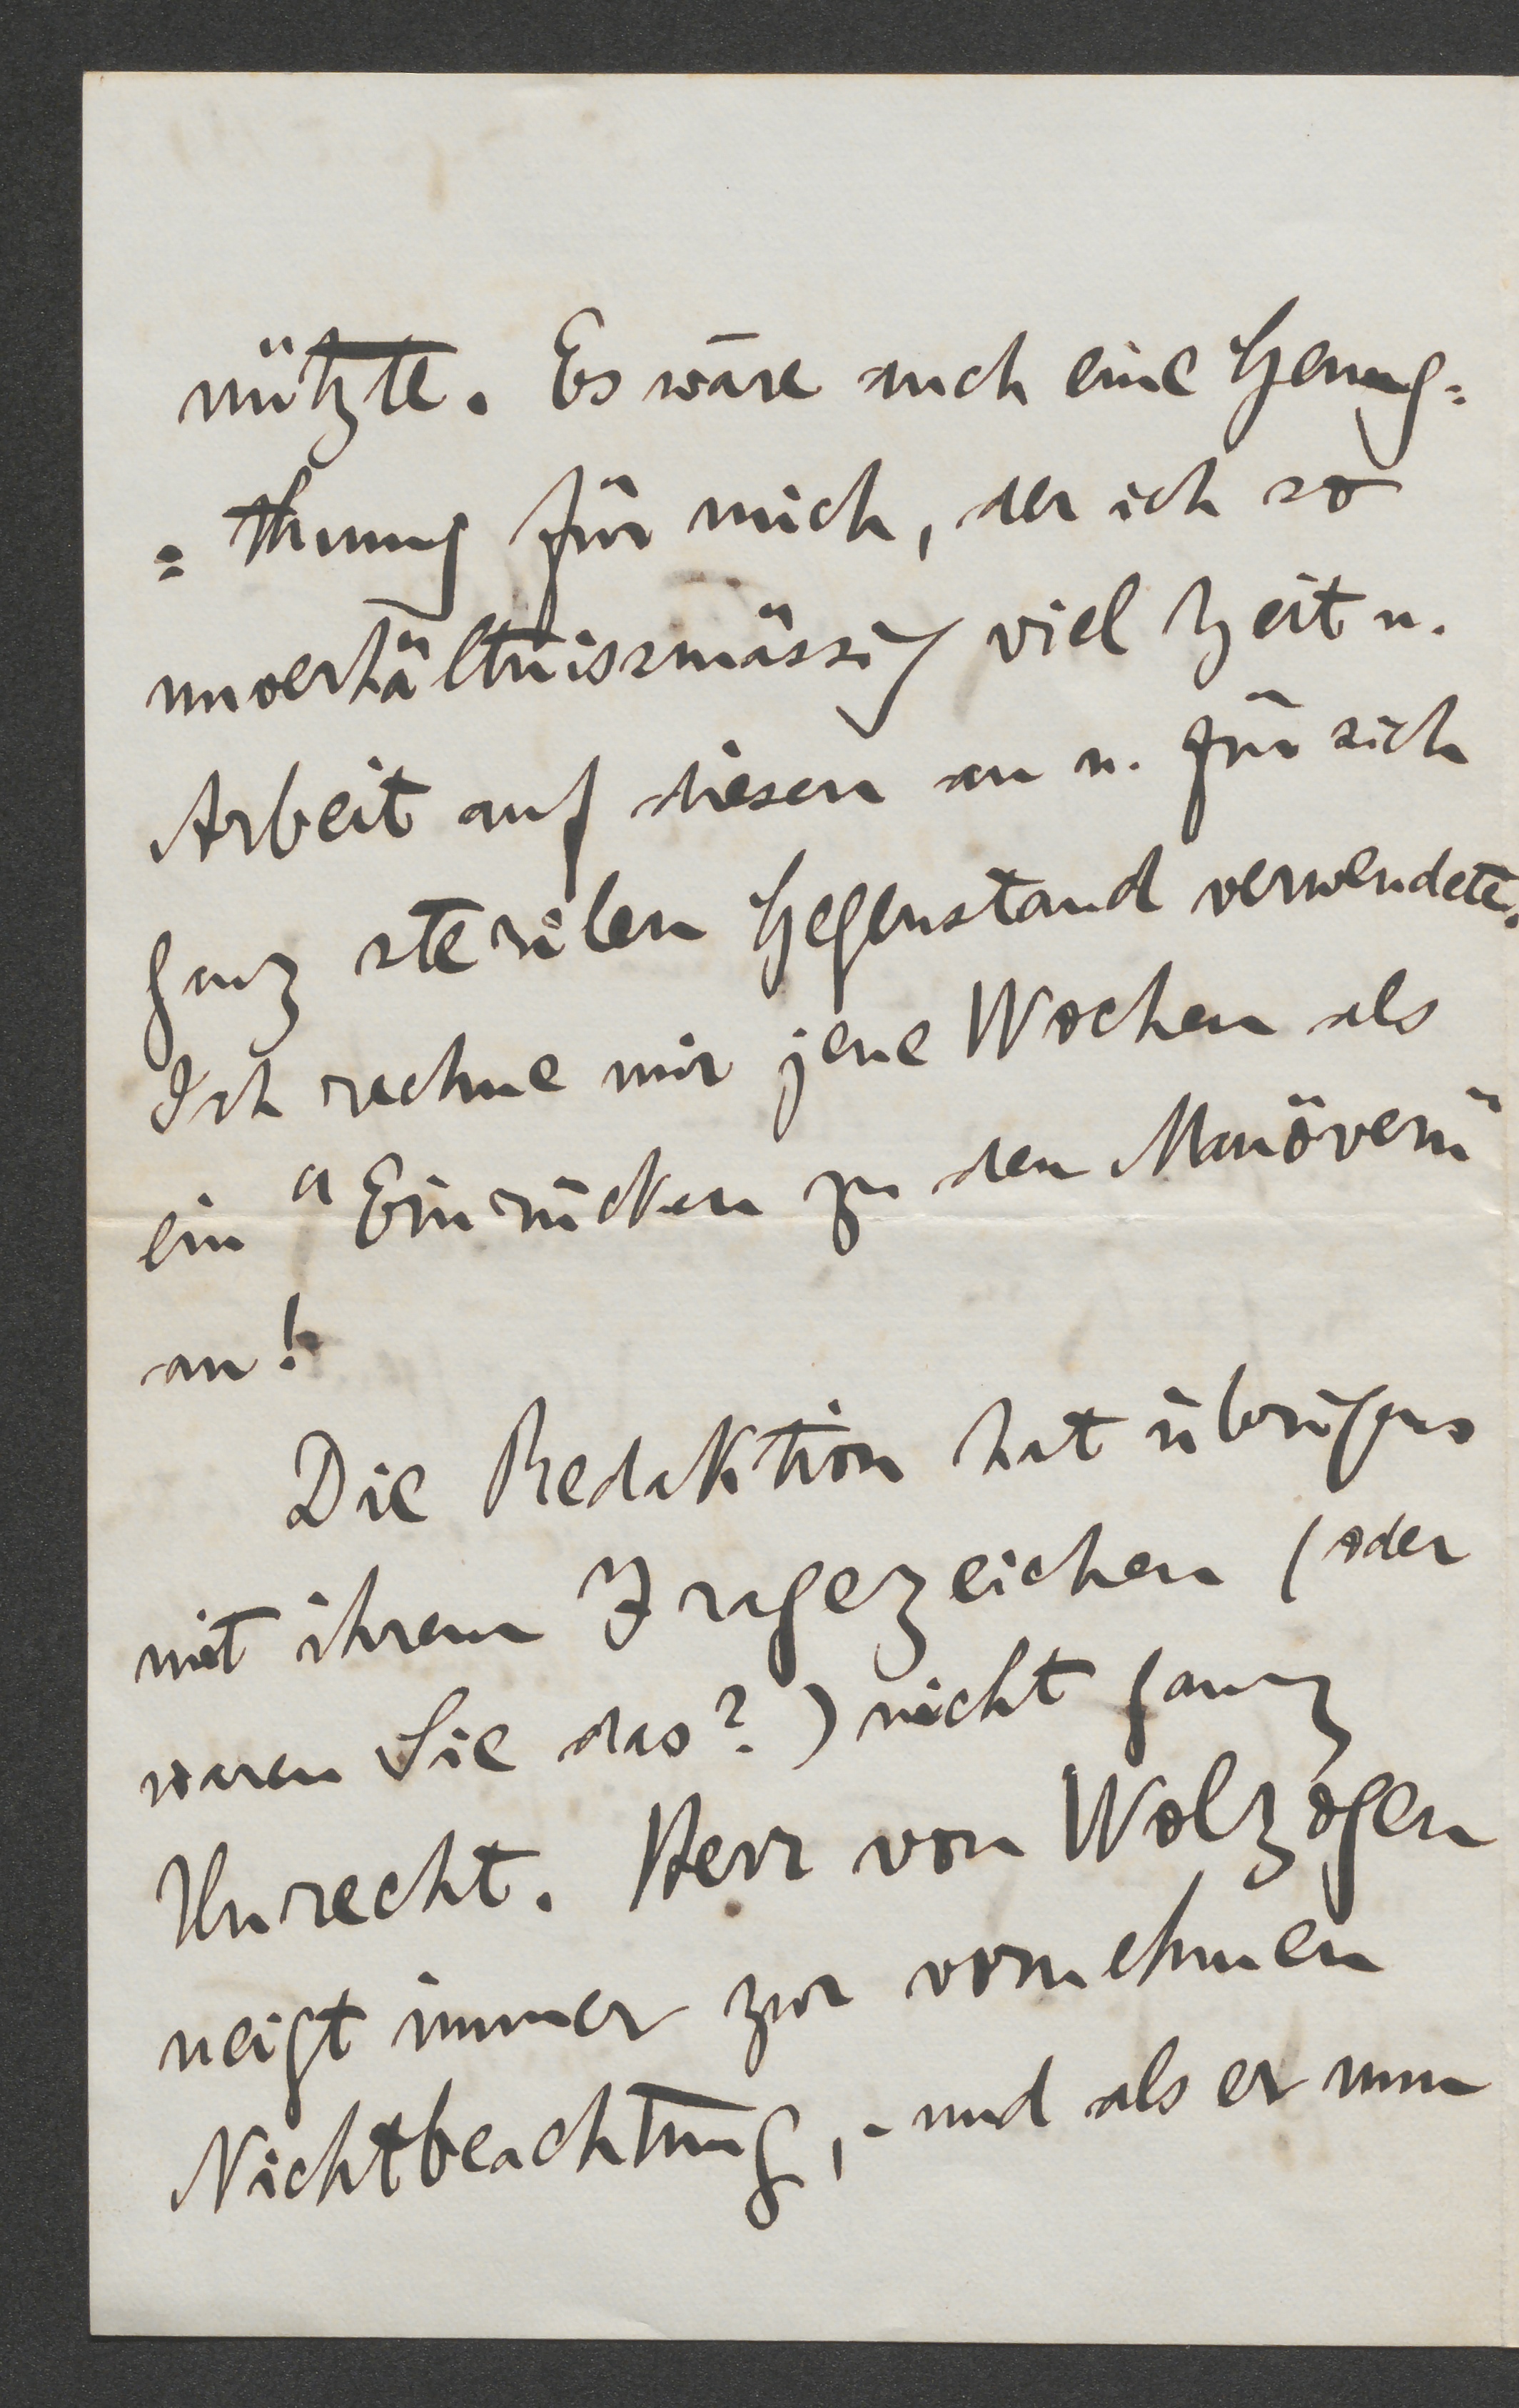 nützte. Es wäre auch eine Genug=
=thuung für mich, der ich so
unverhältnissmässig viel Zeit u.
Arbeit auf diesen an u. für sich
ganz sterilen Gegenstand verwendete.
Ich rechne mir jene Wochen als
ein "Einrücken zu den Manövern"
an!
Die Redaktion hat übrigens
mit ihrem Fragezeichen (oder
waren Sie das?) nicht ganz
Unrecht. Herr von Wolzogen
neigt immer zur vornehmen
Nichtbeachtung, - und als er nun